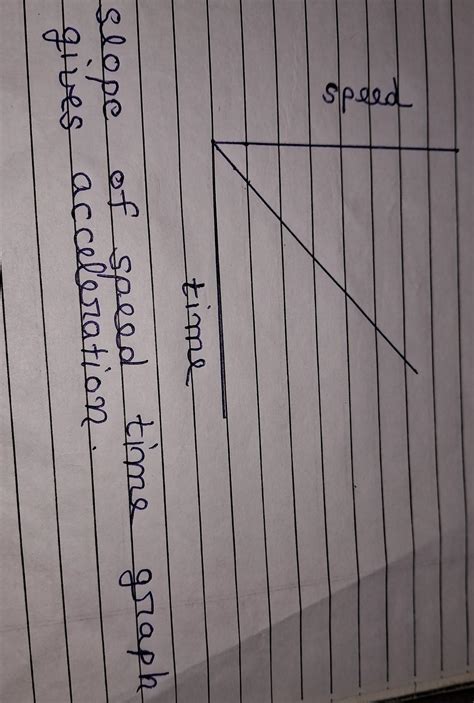 speed
time
slope of speed time graph
gives acceleration.